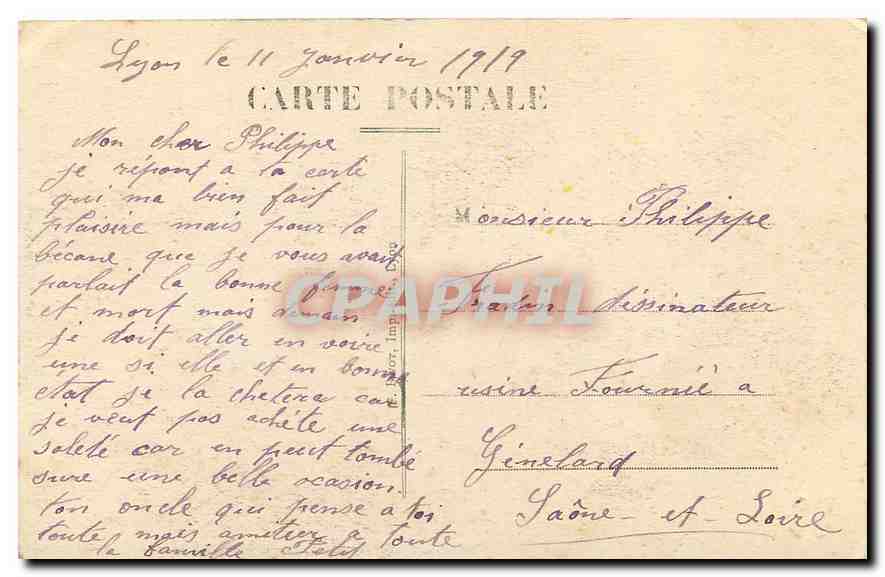 Lyon le 11 Janvier 1919
CARTE POSTALE
Mon cher Philippe
je répont a la carte
qui ma bien fait
plaisire mais pour la
bécane que je vous avait
parlait la bonne femme
et mort mais demain
je doit aller en voire
une si elle et en bonne
état je la chetera car
je veut pas achéte une
saleté car on peut tombé
sure une belle ocasion
ton oncle qui pense a toi
toute mais amitier a toute
la famille Petit
Monsieur Philippe
dissinateur
usine Fournié a
Génelard
Saône-et-Loire
CPAPHIL